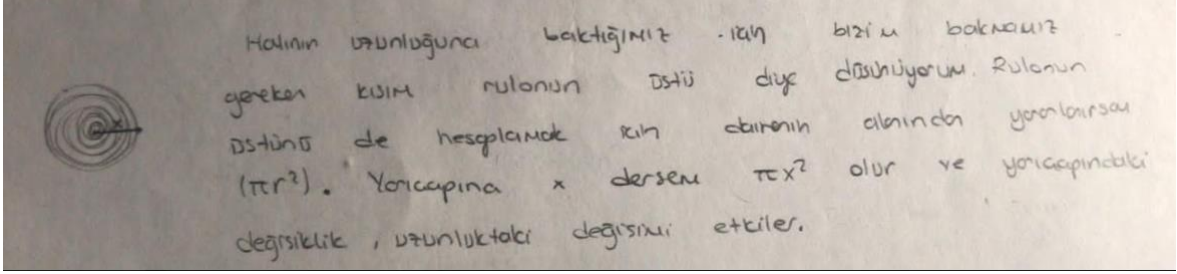 Halının uzunluğuna baktığımız için bizim bakmamız
gereken kısım rulonun üstü diye düşünüyorum. Rulonun
üstünü de hesaplamak için dairenin alanından yararlanırsam
(πr²). Yarıçapına x dersem πx² olur ve yarıçapındaki
değişiklik, uzunluktaki değişimi etkiler.
x